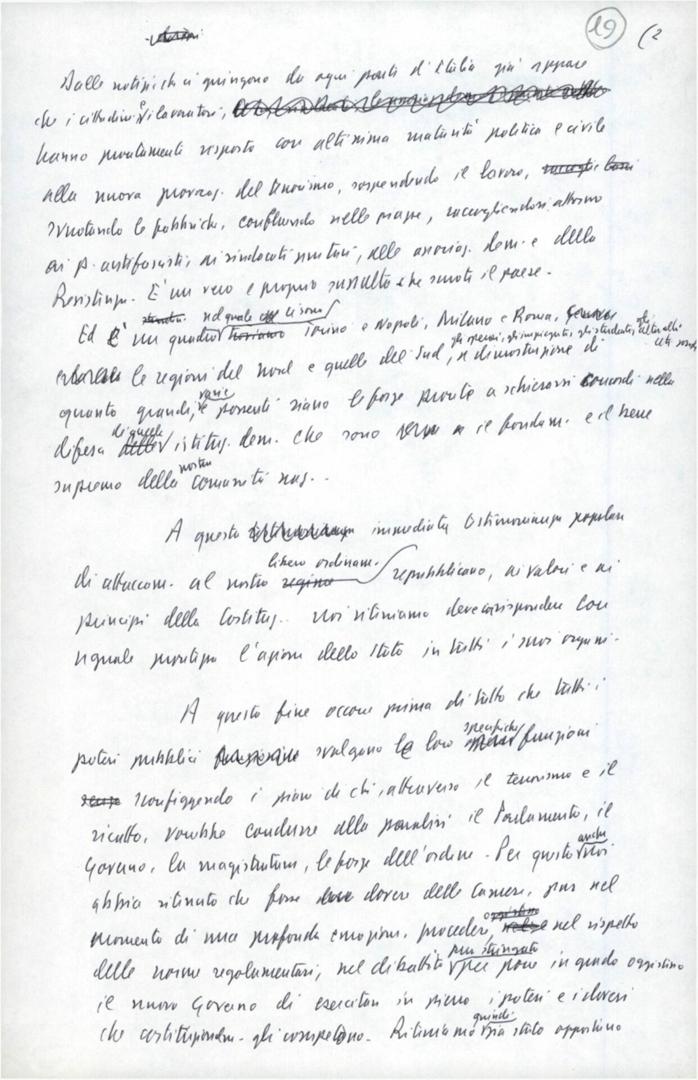 19 (2
Dalle notizie che ci giungono da ogni parte d'Italia già appare
che i cittadini e i lavoratori,
hanno prontamente risposto con altissima maturità politica e civile
alla nuova provocaz. del terrorismo, sospendendo il lavoro,
svuotando le fabbriche, confluendo nelle piazze, raccogliendosi attorno
ai p. antifascisti, ai sindacati unitari, alle associaz. dem. e della
Resistenza. E' un vero e proprio sussulto che scuote il paese.
nel quale ci sono
Ed E' un quadro Torino e Napoli, Milano e Roma, Genova
gli operai, gli impiegati, gli studenti, gli altri
le regioni del Nord e quelle del Sud, a dimostrazione di
varie
quanto grandi, e possenti siano le forze pronte a schierarsi concordi nella
di quelle
difesa istituz. dem. che sono il fondam. e il bene
nostra
supremo della comunità naz..
A questa immediata testimonianza popolare
libero ordinam.
di attaccam. al nostro regime repubblicano, ai valori e ai
principi della Costituz.. noi riteniamo deve corrispondere con
uguale prontezza l'azione dello Stato in tutti i suoi organi.
A questo fine occorre prima di tutto che tutti i
specifiche
poteri pubblici svolgano le loro funzioni
sconfiggendo i piani di chi, attraverso il terrorismo e il
ricatto, vorrebbe condurre alla paralisi il Parlamento, il
anche
Governo, la magistratura, le forze dell'ordine. Per questo noi
abbia ritenuto che fosse dovere delle Camere, pur nel
momento di una profonda emozione, procedere, nel rispetto
pur stringato
delle norme regolamentari, nel dibattito per porre in grado oggi stesso
il nuovo Governo di esercitare in pieno i poteri e i doveri
quindi
che costituzionalm. gli competono. Riteniamo sia stato opportuno